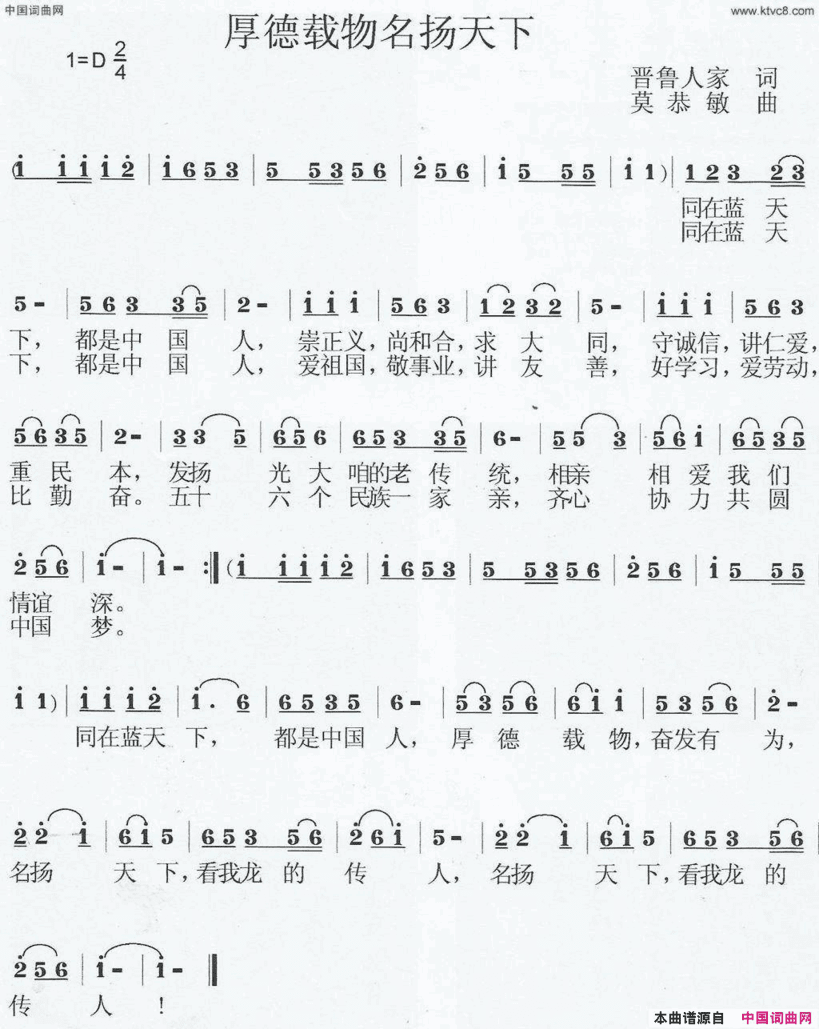 中国词曲网 www.ktvc8.com
厚德载物名扬天下
1=D 2/4
晋鲁人家 词
莫恭敏 曲
(i i i i 2 | i 6 5 3 | 5 5 3 5 6 | 2 5 6 | i 5 5 5 | i 1) | 1 2 3 2 3
同在蓝 天
同在蓝 天
5 - | 5 6 3 3 5 | 2 - | i i i | 5 6 3 | 1 2 3 2 | 5 - | i i i | 5 6 3
下, 都是中 国 人, 崇正义, 尚和合, 求 大 同, 守诚信, 讲仁爱,
下, 都是中 国 人, 爱祖国, 敬事业, 讲 友 善, 好学习, 爱劳动,
5 6 3 5 | 2 - | 3 3 5 | 6 5 6 | 6 5 3 3 5 | 6 - | 5 5 3 | 5 6 i | 6 5 3 5
重 民 本, 发扬 光 大 咱的老 传 统, 相亲 相 爱 我 们
比 勤 奋。 五十 六 个 民族一 家 亲, 齐心 协 力 共 圆
2 5 6 | i - | i - :‖ (i i i i 2 | i 6 5 3 | 5 5 3 5 6 | 2 5 6 | i 5 5 5
情谊 深。
中国 梦。
i 1) | i i i 2 | i . 6 | 6 5 3 5 | 6 - | 5 3 5 6 | 6 i i | 5 3 5 6 | 2 -
同在蓝天 下, 都是中国 人, 厚 德 载 物, 奋发有 为,
2 2 i | 6 i 5 | 6 5 3 5 6 | 2 6 i | 5 - | 2 2 i | 6 i 5 | 6 5 3 5 6
名扬 天 下, 看我龙 的 传 人, 名扬 天 下, 看我龙 的
2 5 6 | i - | i - ‖
传 人 !
本曲谱源自 中国词曲网